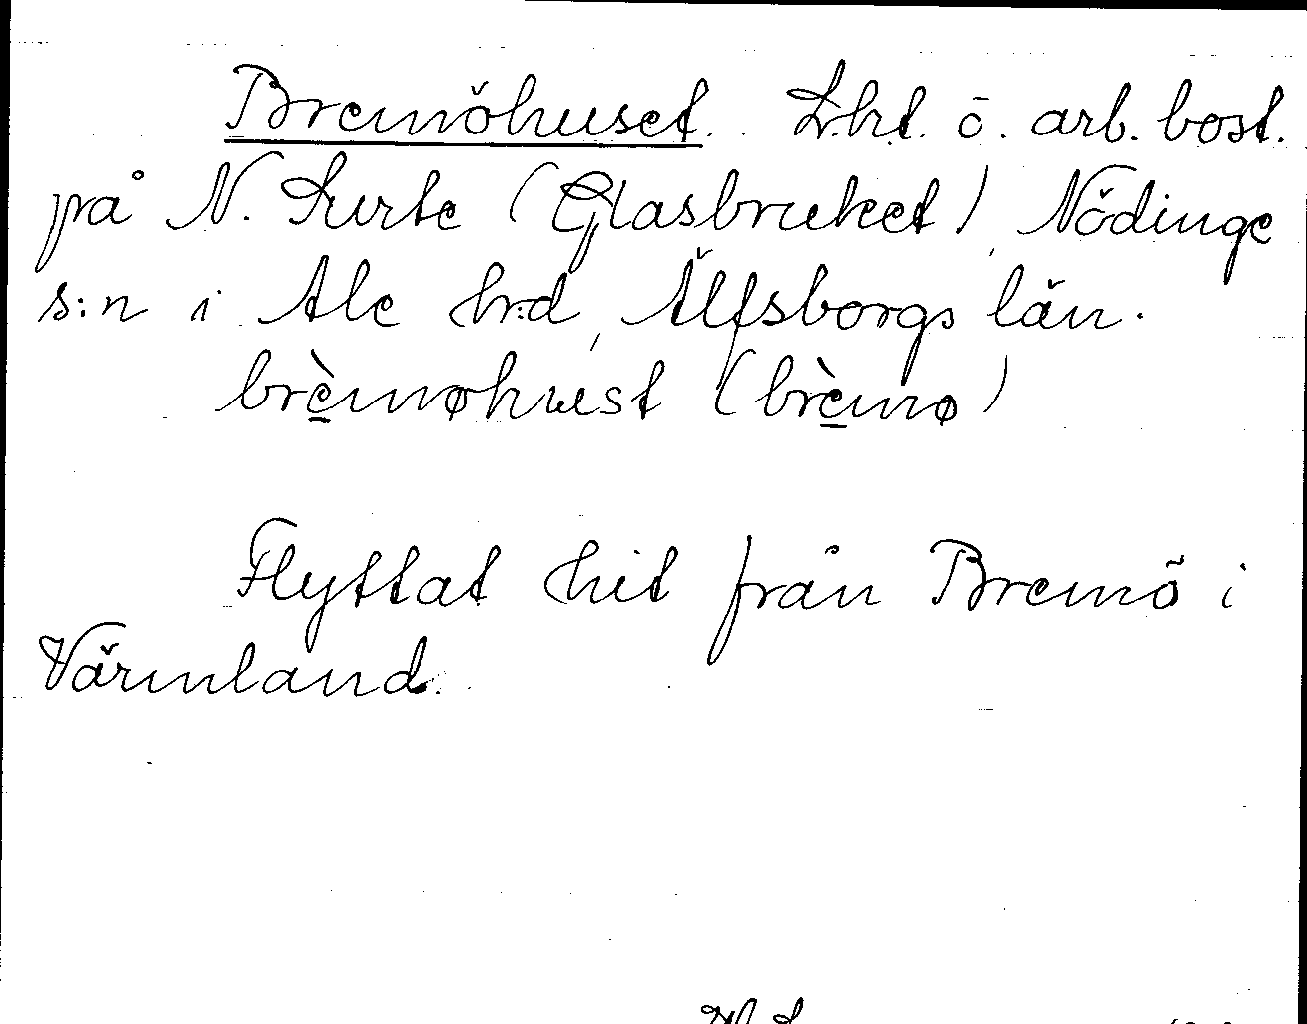 Bremöhuset. Lht. o. arb. bost.
på N. Surte (Glasbruket), Nödinge
s:n i Ale h:d, Älfsborgs län.
brèmøhust (brèmø)
Flyttat hit från Bremö i
Värmland.